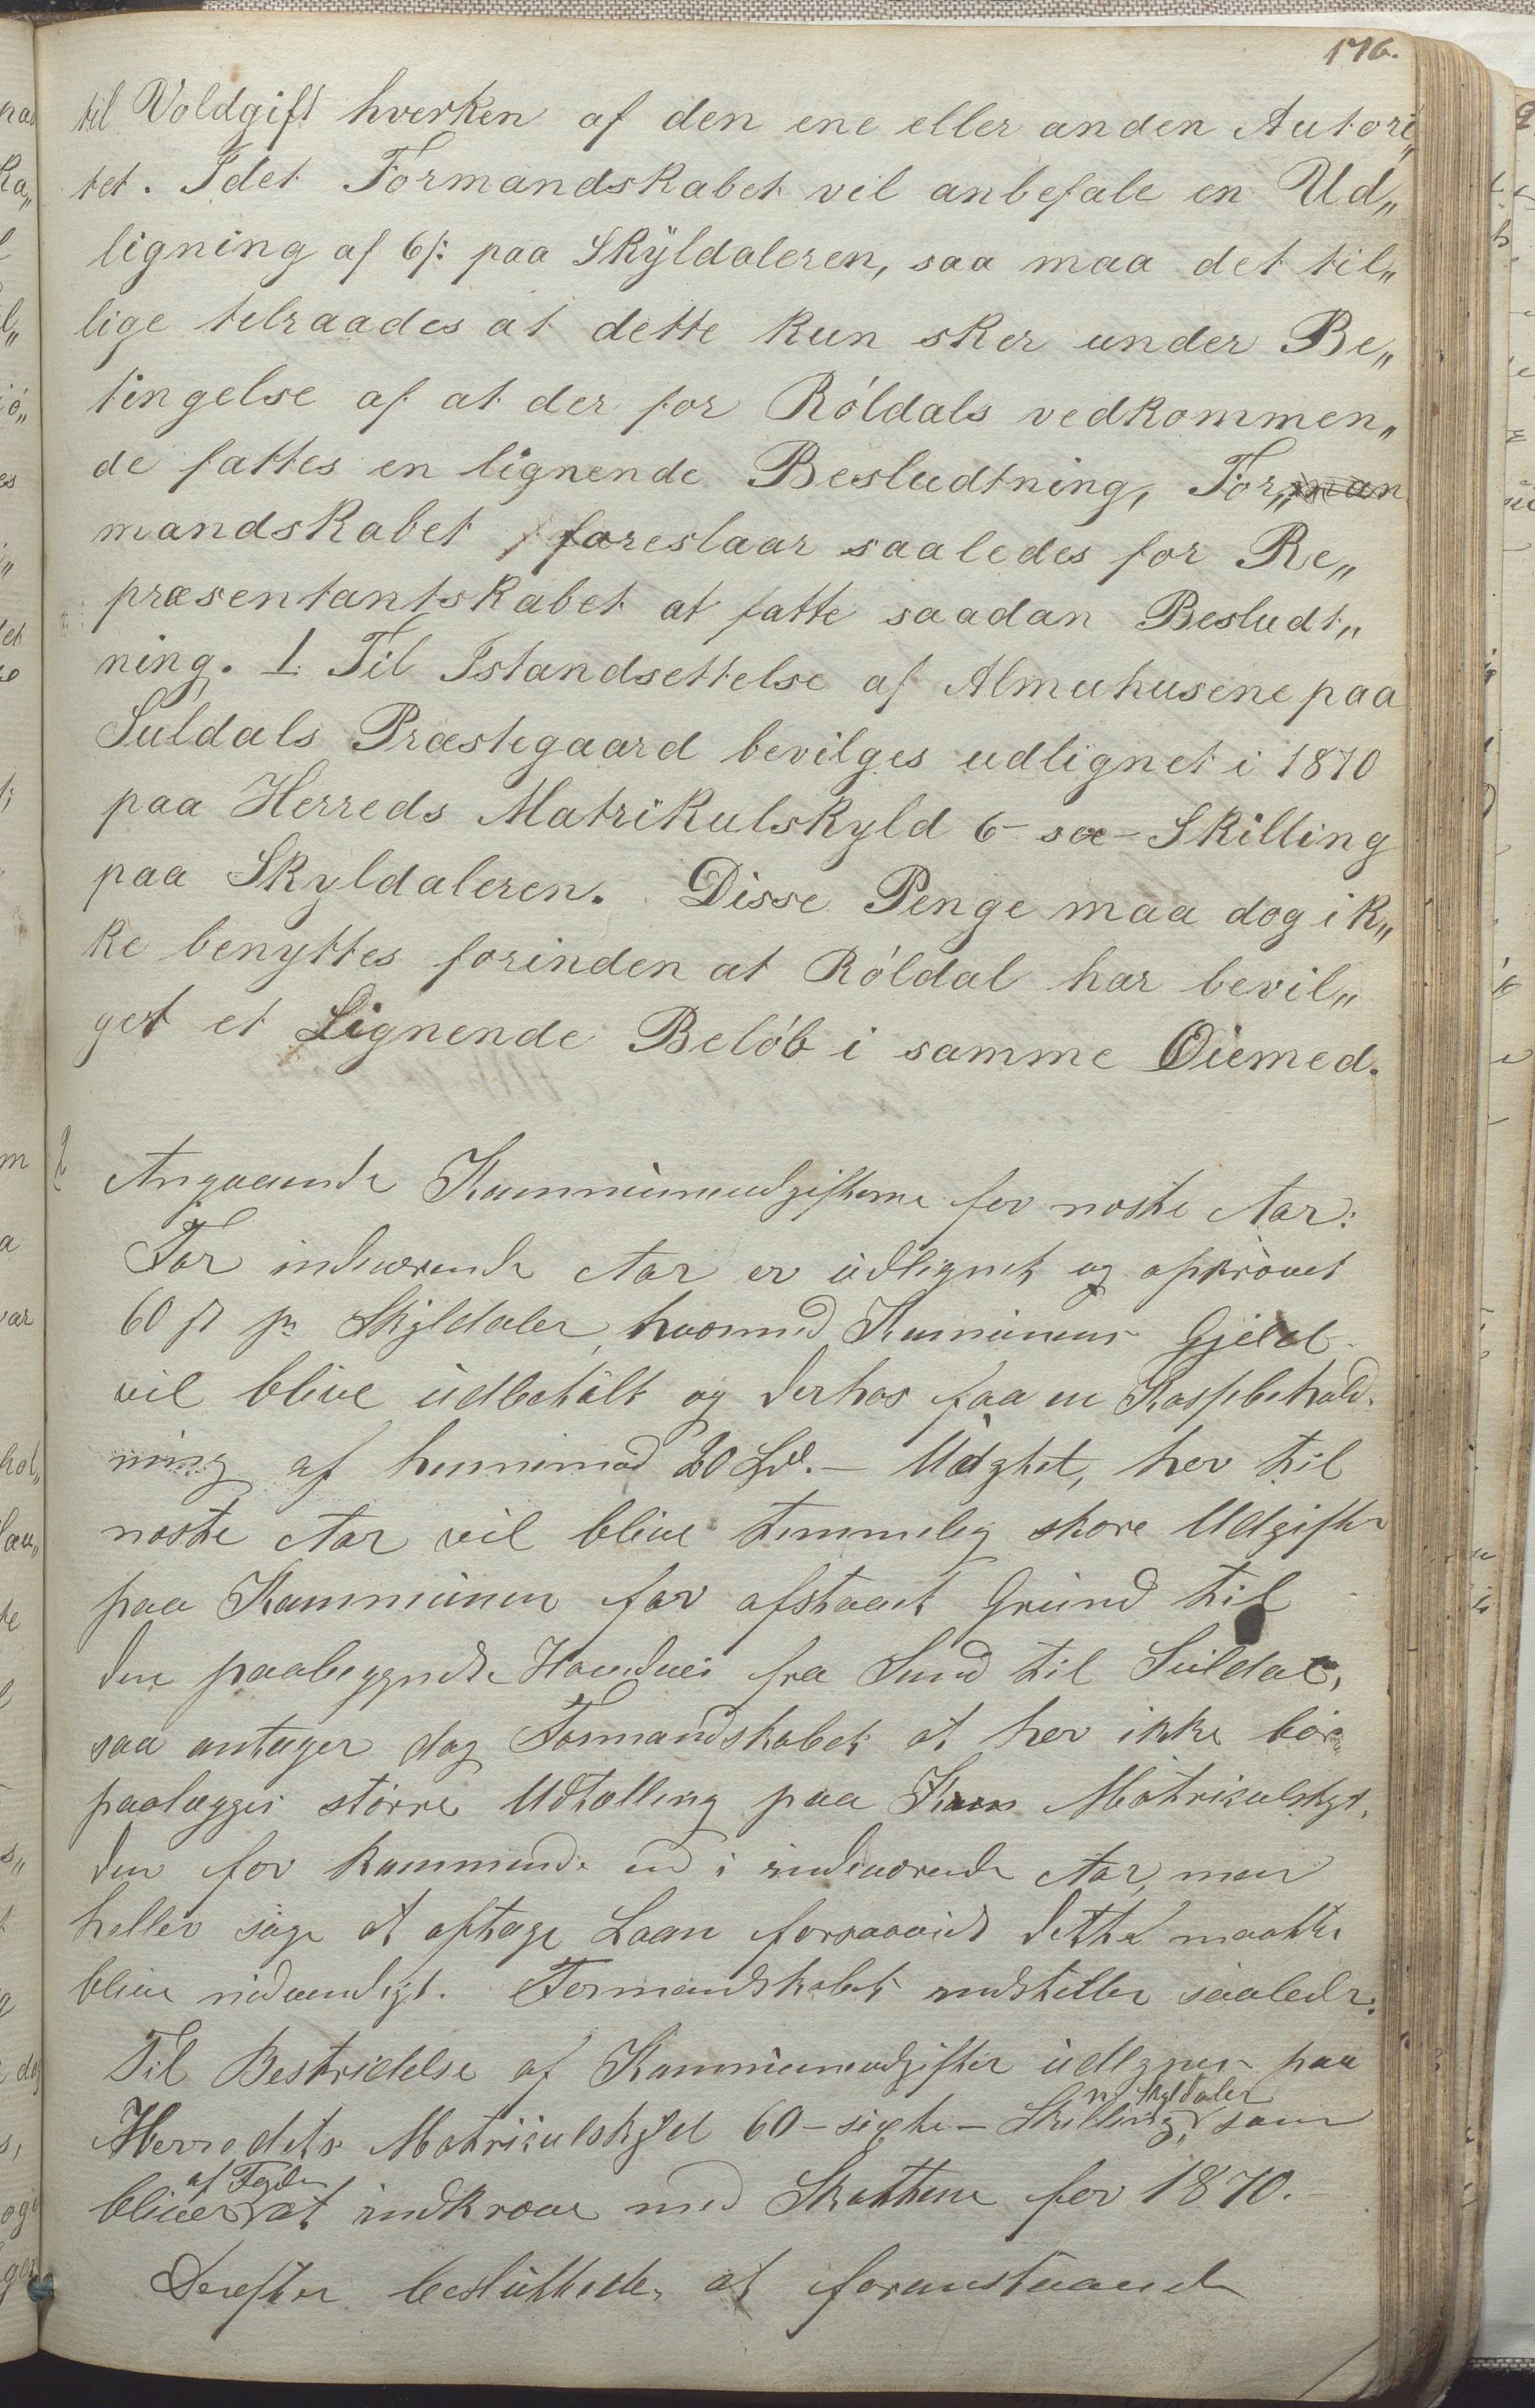 176.
til Voldgift hverken af den ene eller anden Autori„
tet. Idet Formandskabet vil anbefale en Ud„
ligning af 6 s: paa Skÿldaleren, saa maa det til„
lige telraades at dette kun sker under Be„
tingelse af at der for Róldals vedkommen„
de fattes en lignende Besludtning, For„man
mandskabet foreslaar saaledes for Re„
præsentantskabet at fatte saadan Besludt„
ning. 1. Til Istandsettelse af Almuhusene paa
Suldals Præstegaard bevilges udlignet i 1870
paa Herreds Matrikulskyld 6 - sex - Skilling
paa Skyldaleren. Disse Penge maa dog ik„
ke benyttes forinden at Róldal har bevil„
get et Lignende Belób i samme Øiemed.
2 Angaaende Kommuneudgifterne for næste Aar:
For indeværende Aar er udlignet og opkrævet
60 s pr Skyldaler, hvormed Kommunens Gjeld
vil blive udbetalt og derhos faa en Kassebehold-
ning af henimod 20 Spd. – Uagtet, her til
næste Aar vil blive temmelig store Udgifter
paa Kommunen for afstaaet Grund til
den paabegyndte Hovedvei fra Sand til Suldal,
saa antager dog Formandskabet at her ikke bør
paalægges større Udtælling paa Matrikulskyl-
den for kommende end i indeværende Aar, men
heller søge at optage Laan forsaavidt dette maatte
blive nødvendigt. Formandskabet indstiller saaledes:
Til Bestridelse af Kommuneudgifter udlignes paa
Herredets Matrikulskyld 60 - sexti - Skilling pr Skyldaler, som
bliver af Fogden at indkræve med Skatterne for 1870. –
Derefter besluttedes at foranstaaende